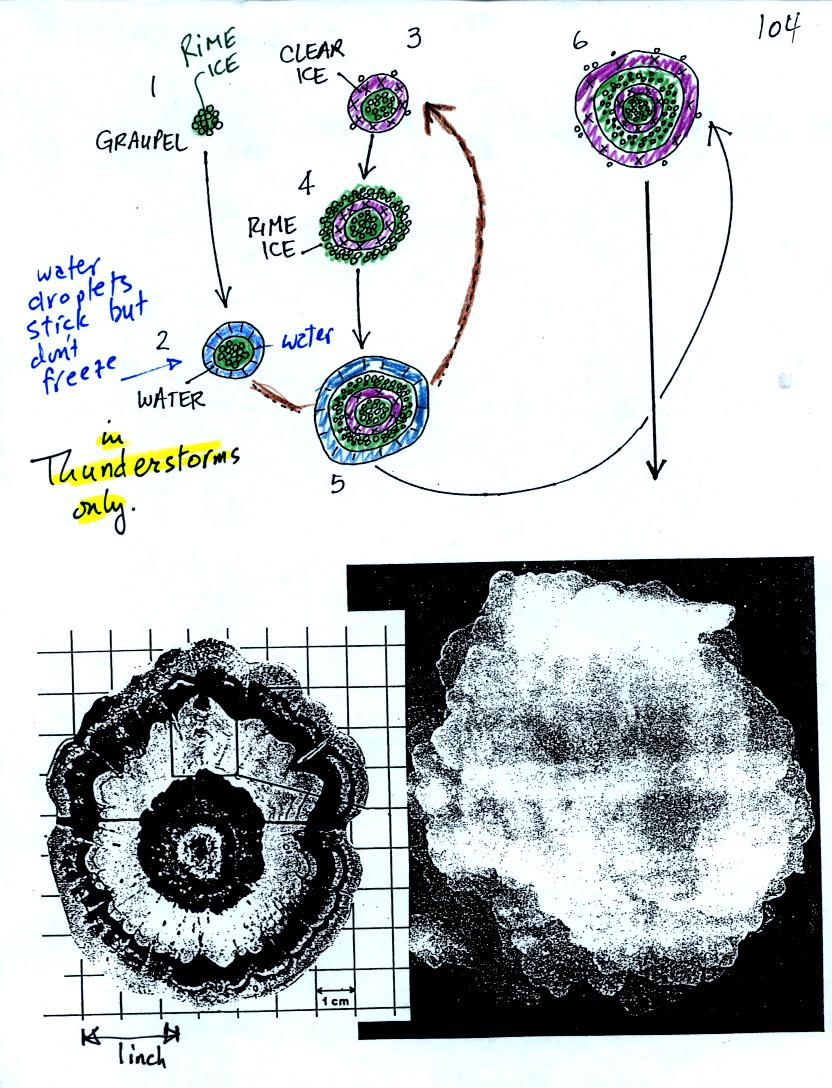 104
1
RIME
ICE
GRAUPEL
CLEAR
ICE
3
6
4
RIME
ICE
water
droplets
stick but
don't
freeze
2
water
WATER
in
Thunderstorms
only.
5
1 cm
1 inch